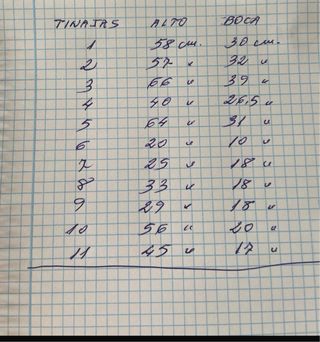 TINAJAS ALTO BOCA
1 58 cm. 30 cm.
2 57 " 32 "
3 66 " 39 "
4 40 " 26,5 "
5 64 " 31 "
6 20 " 10 "
7 25 " 18 "
8 33 " 18 "
9 29 " 18 "
10 56 " 20 "
11 45 " 17 "